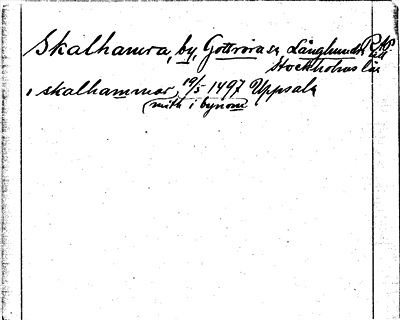 Skalhamra, by, Gottröra sn, Långhundra
Stockholms län
i skalhammar, 19/5 1497 Uppsala
(mith i bynom